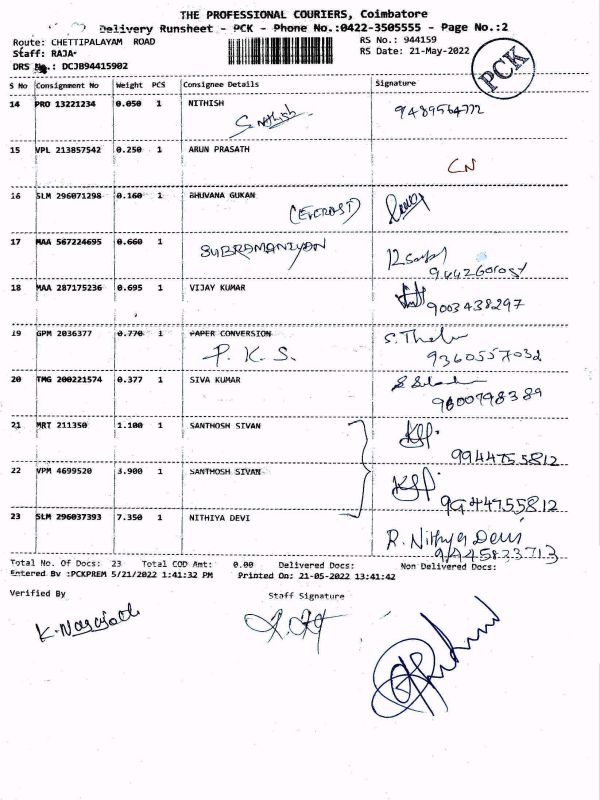 THE PROFESSIONAL COURIERS, Coimbatore
Delivery Runsheet - PCK - Phone No.:0422-3505555 - Page No.:2
Route: CHETTIPALAYAM ROAD RS No.: 944159
Staff: RAJA RS Date: 21-May-2022
DRS No.: DCJB94415902
PCK
S No Consignment No Weight PCS Consignee Details Signature
14 PRO 13221234 0.050 1 NITHISH
S. Nithish 9489564772
15 VPL 213857542 0.250 1 ARUN PRASATH
CN
16 SLM 296071298 0.160 1 BHUVANA GUKAN
17 MAA 567224695 0.660 1
SUBRAMANIYAN
18 MAA 287175236 0.695 1 VIJAY KUMAR
9003438297
19 GPM 2036377 0.770 1 PAPER CONVERSION
P. K. S. 9360557032
20 TMG 200221574 0.377 1 SIVA KUMAR
9600798389
21 MRT 211350 1.100 1 SANTHOSH SIVAN
9944755812
22 VPM 4699520 3.900 1 SANTHOSH SIVAN
9944755812
23 SLM 296037393 7.350 1 NITHIYA DEVI
R. Nithya Devi
Total No. Of Docs: 23 Total COD Amt: 0.00 Delivered Docs: Non Delivered Docs:
Entered By :PCKPREM 5/21/2022 1:41:32 PM Printed On: 21-05-2022 13:41:42
Verified By Staff Signature